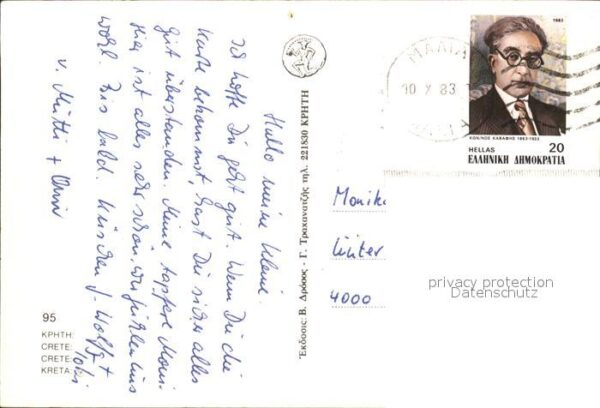 Hallo meine Kleine.
Ich hoffe Du geht gut. Wenn Du die
Karte bekommst, hast Du sicher alles
gut überstanden. Meine tapfere Moni.
Hier ist alles sehr schön, wir fühlen uns
wohl. Bis bald. Küsschen J. Wolfg. +
v. Mutti +
95
ΚΡΗΤΗ:
CRETE:
CRETE:
KRETA:
Έκδοσις: Β. Δρόσος - Γ. Τραχανατζής τηλ. 221830 ΚΡΗΤΗ
1983
ΜΑΛΙΑ
10 X 83
ΚΩΝ/ΝΟΣ ΚΑΒΑΦΗΣ 1863-1933
HELLAS 20
ΕΛΛΗΝΙΚΗ ΔΗΜΟΚΡΑΤΙΑ
Monik
4000
privacy protection
Datenschutz